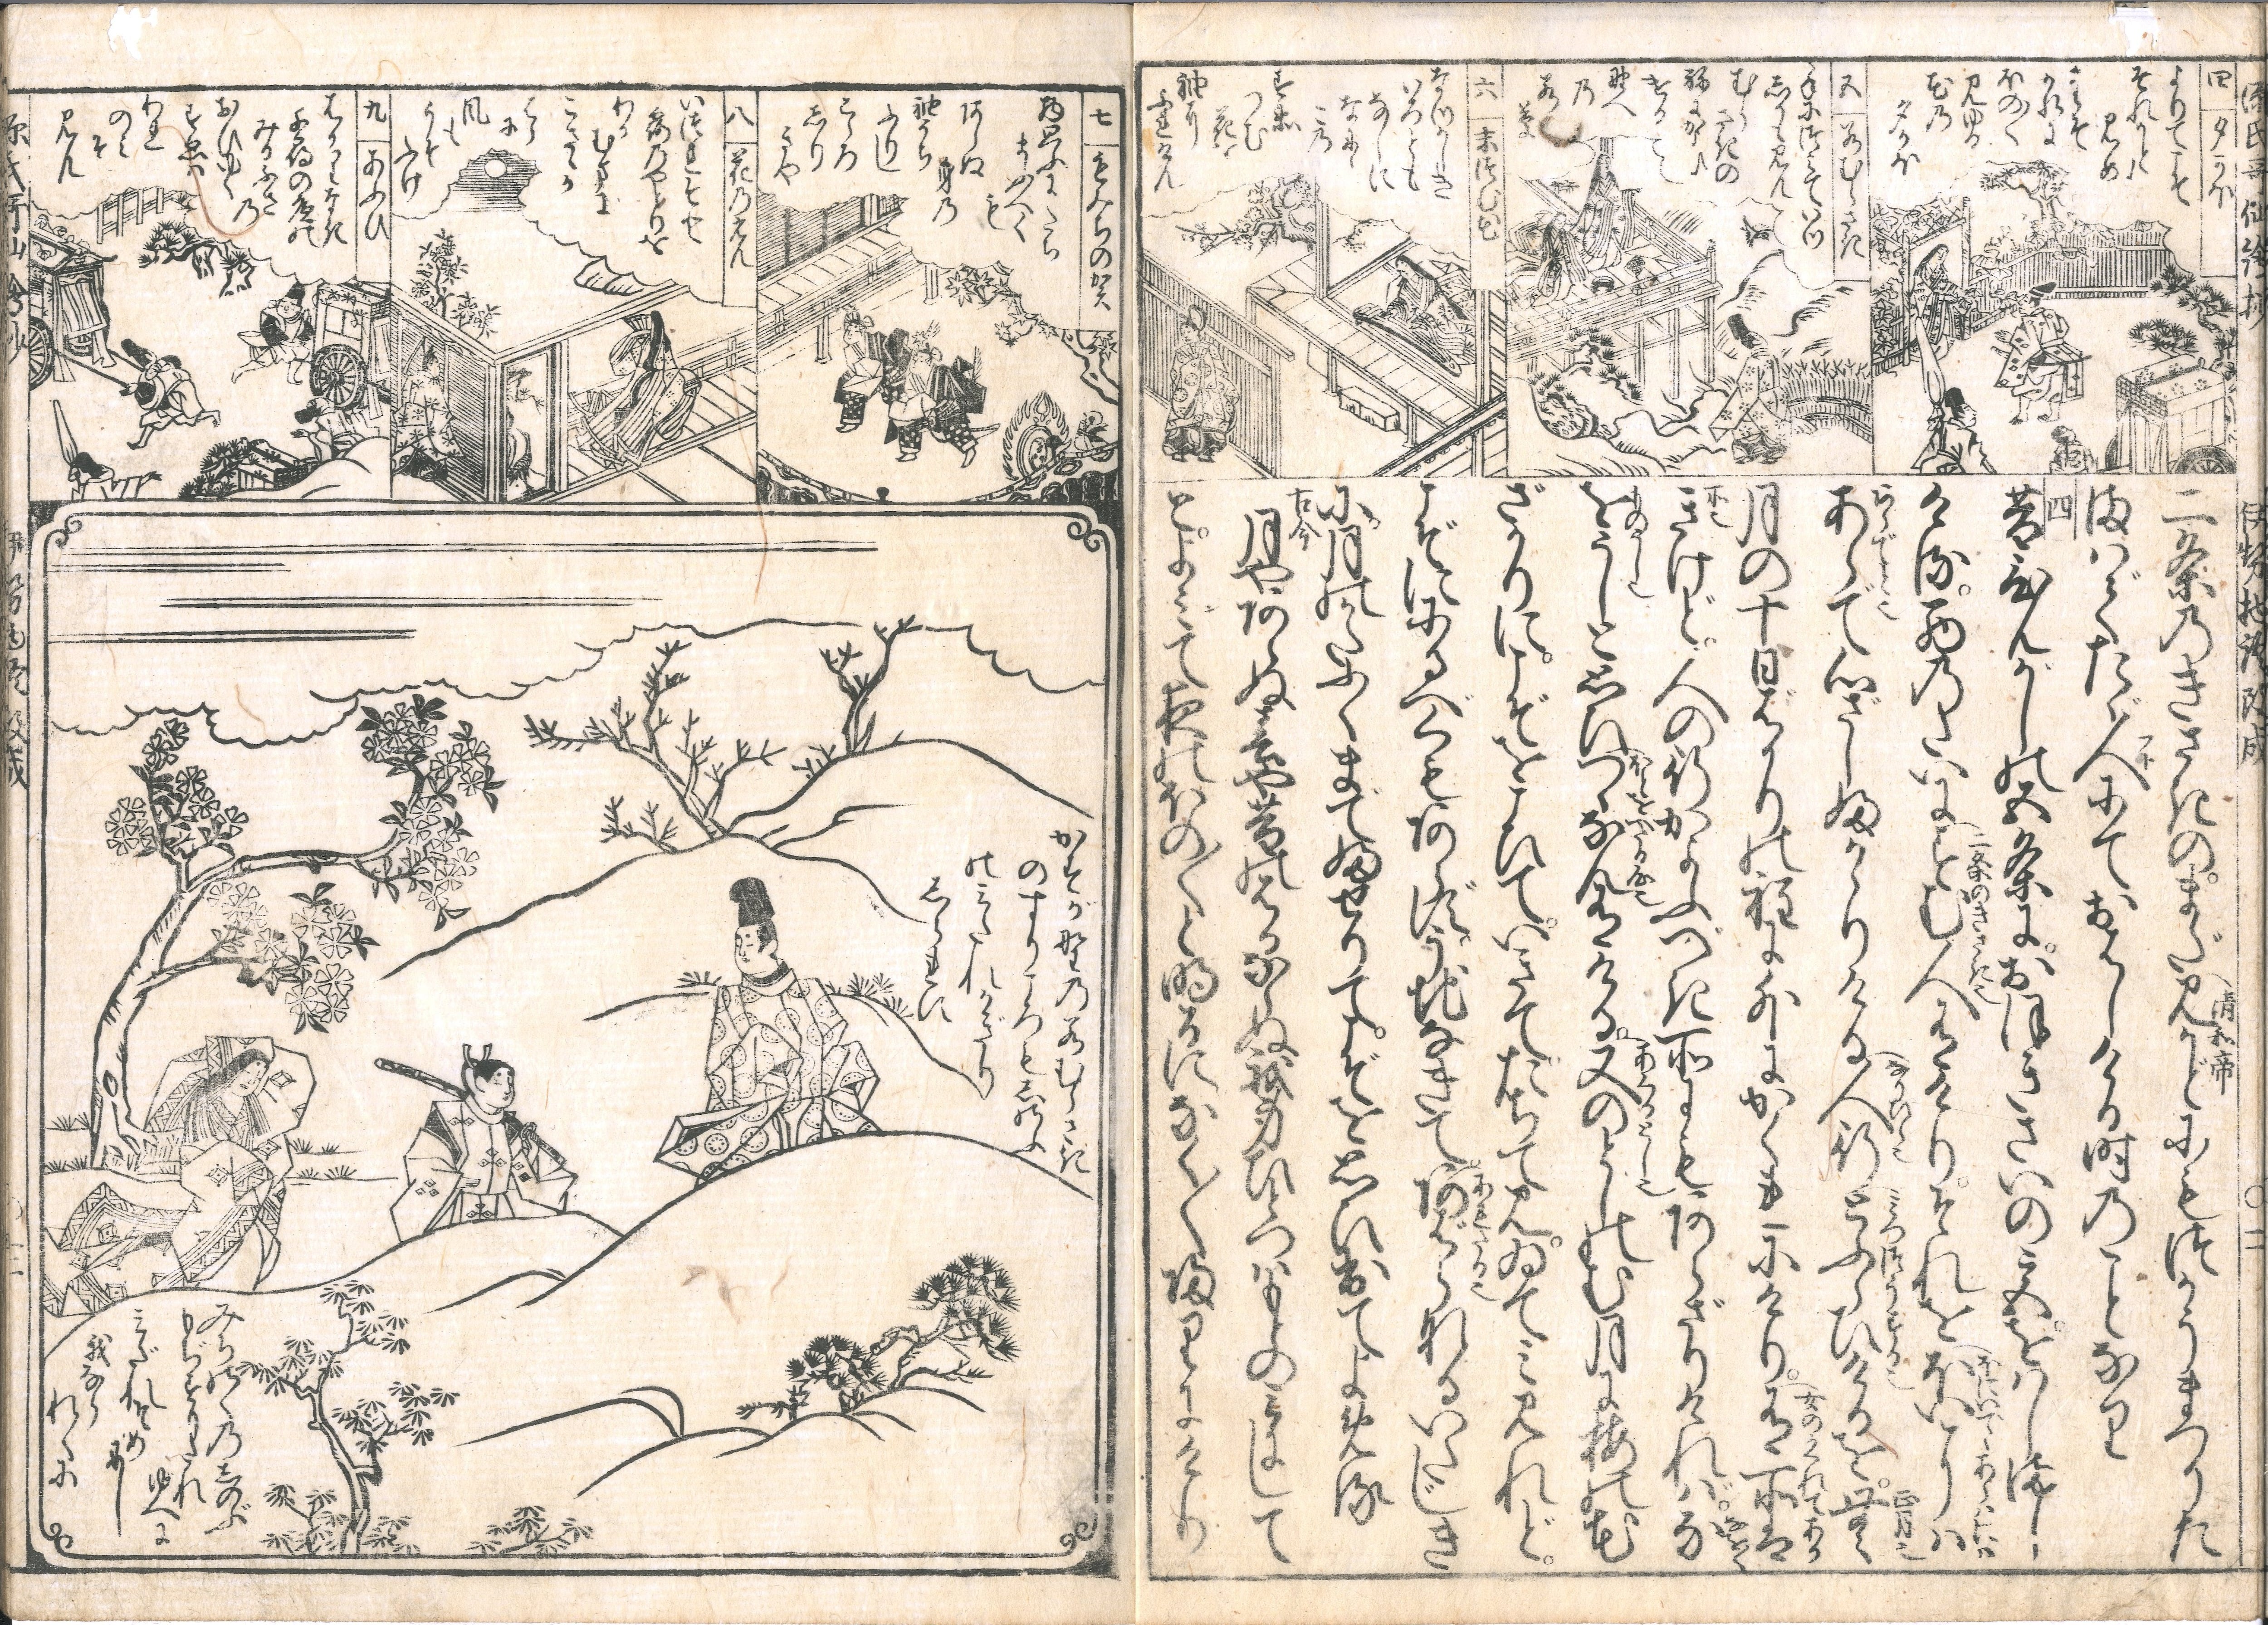 四 夕かほ
よりてこそ
それかとも
見め
たそ
かれに
ほの〴〵
見ゆる
花の
夕かほ
五 若むらさき
手につみていつ
しかも見ん
むらさきの
ねにかよひ
ける
野へ
の
若草
六 末つむ花
なつかしき
いろとも
なしに
なにに
この
すゑ
つむ
花を
袖に
ふれけん
二条のきさきのまだ見かどにもつかうまつりた
清和帝
まはでたゞ人にておはしける時のことなり
四
昔ひんがしの五条におほきさいの宮おはしまし
ける西のたいにすむ人有けりそれをほいには
二条のきさき也
あらで心ざしふかゝりける人行とふらひけるを正
月の十日ばかりの程に外にかくれにけり有所は
きけど人の行かよふべき所にもあらざりければ猶
うしと思ひつゝなん有ける又のとしのむ月に梅の花
ざかりにこぞをこひていきてたちて見ゐて見見れど
こぞににるべくもあらずうちなきてあばらなるいたじき
に月のかたふくまでふせりてこぞを思ひ出てよめる
古今
月やあらぬ春や昔の春ならぬ我身ひとつはもとの身にして
とよみて夜のほの〴〵と明るになく〳〵帰りにけり
七 もみちの賀
物思ふにたち
まふへく
も
あらぬ
身の
袖うち
ふりし
こゝろ
しり
きや
八 花のえん
いつれそと
露のやとりを
わかむまに
こさゝか
はらに
風
も
こそ
ふけ
九 あふひ
はかりなき
千尋の底の
みるふさの
おひゆく
すゑは
われ
のみ
そ
見ん
かすが野の若むらさき
のすりころもしのふ
のみたれかぎり
しられず
みちのくの忍ぶ
もぢずりたれ
ゆへに
みだれそめ
にし
我なら
なくに